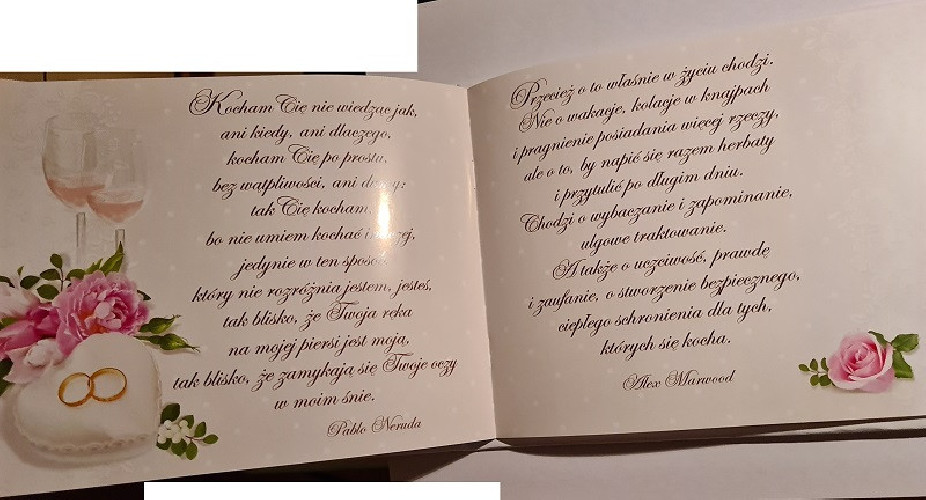 Kocham Cię nie wiedząc jak,
ani kiedy, ani dlaczego,
kocham Cię po prostu,
bez wątpliwości, ani
tak Cię kocham,
bo nie umiem kochać
jedynie w ten sposób,
który nie rozróżnia jestem, jesteś,
tak blisko, że Twoja ręka
na mojej piersi jest moją,
tak blisko, że zamykają się Twoje oczy
w moim śnie.
Pablo Neruda
Przecież o to właśnie w życiu chodzi.
Nie o wakacje, kolacje w knajpach
i pragnienie posiadania więcej rzeczy,
ale o to, by napić się razem herbaty
i przytulić po długim dniu.
Chodzi o wybaczanie i zapominanie,
ulgowe traktowanie.
A także o uczciwość, prawdę
i zaufanie, o stworzenie bezpiecznego,
ciepłego schronienia dla tych,
których się kocha.
Alex Marwood